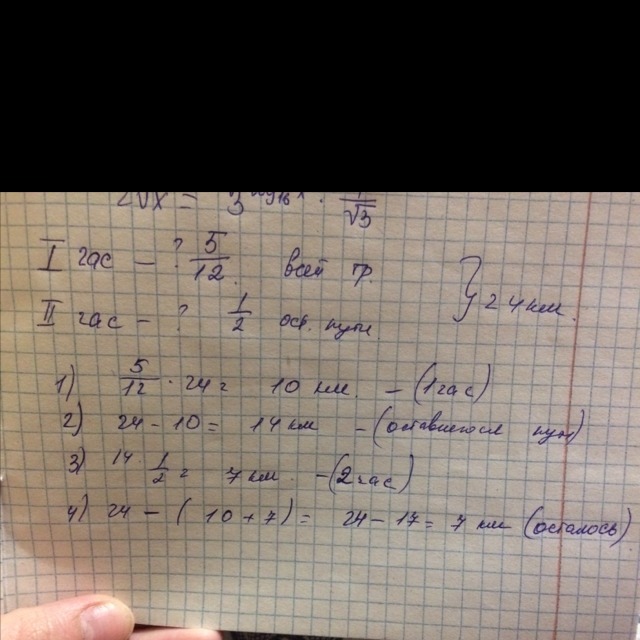 2√x = 3 · 1/√3
I час – ? 5/12 всей тр. } 24 км.
II час – ? 1/2 ост. пути
1) 5/12 · 24 = 10 км. – (1 час)
2) 24 – 10 = 14 км – (оставшегося пути)
3) 14 · 1/2 = 7 км. – (2 час)
4) 24 – (10 + 7) = 24 – 17 = 7 км (осталось)